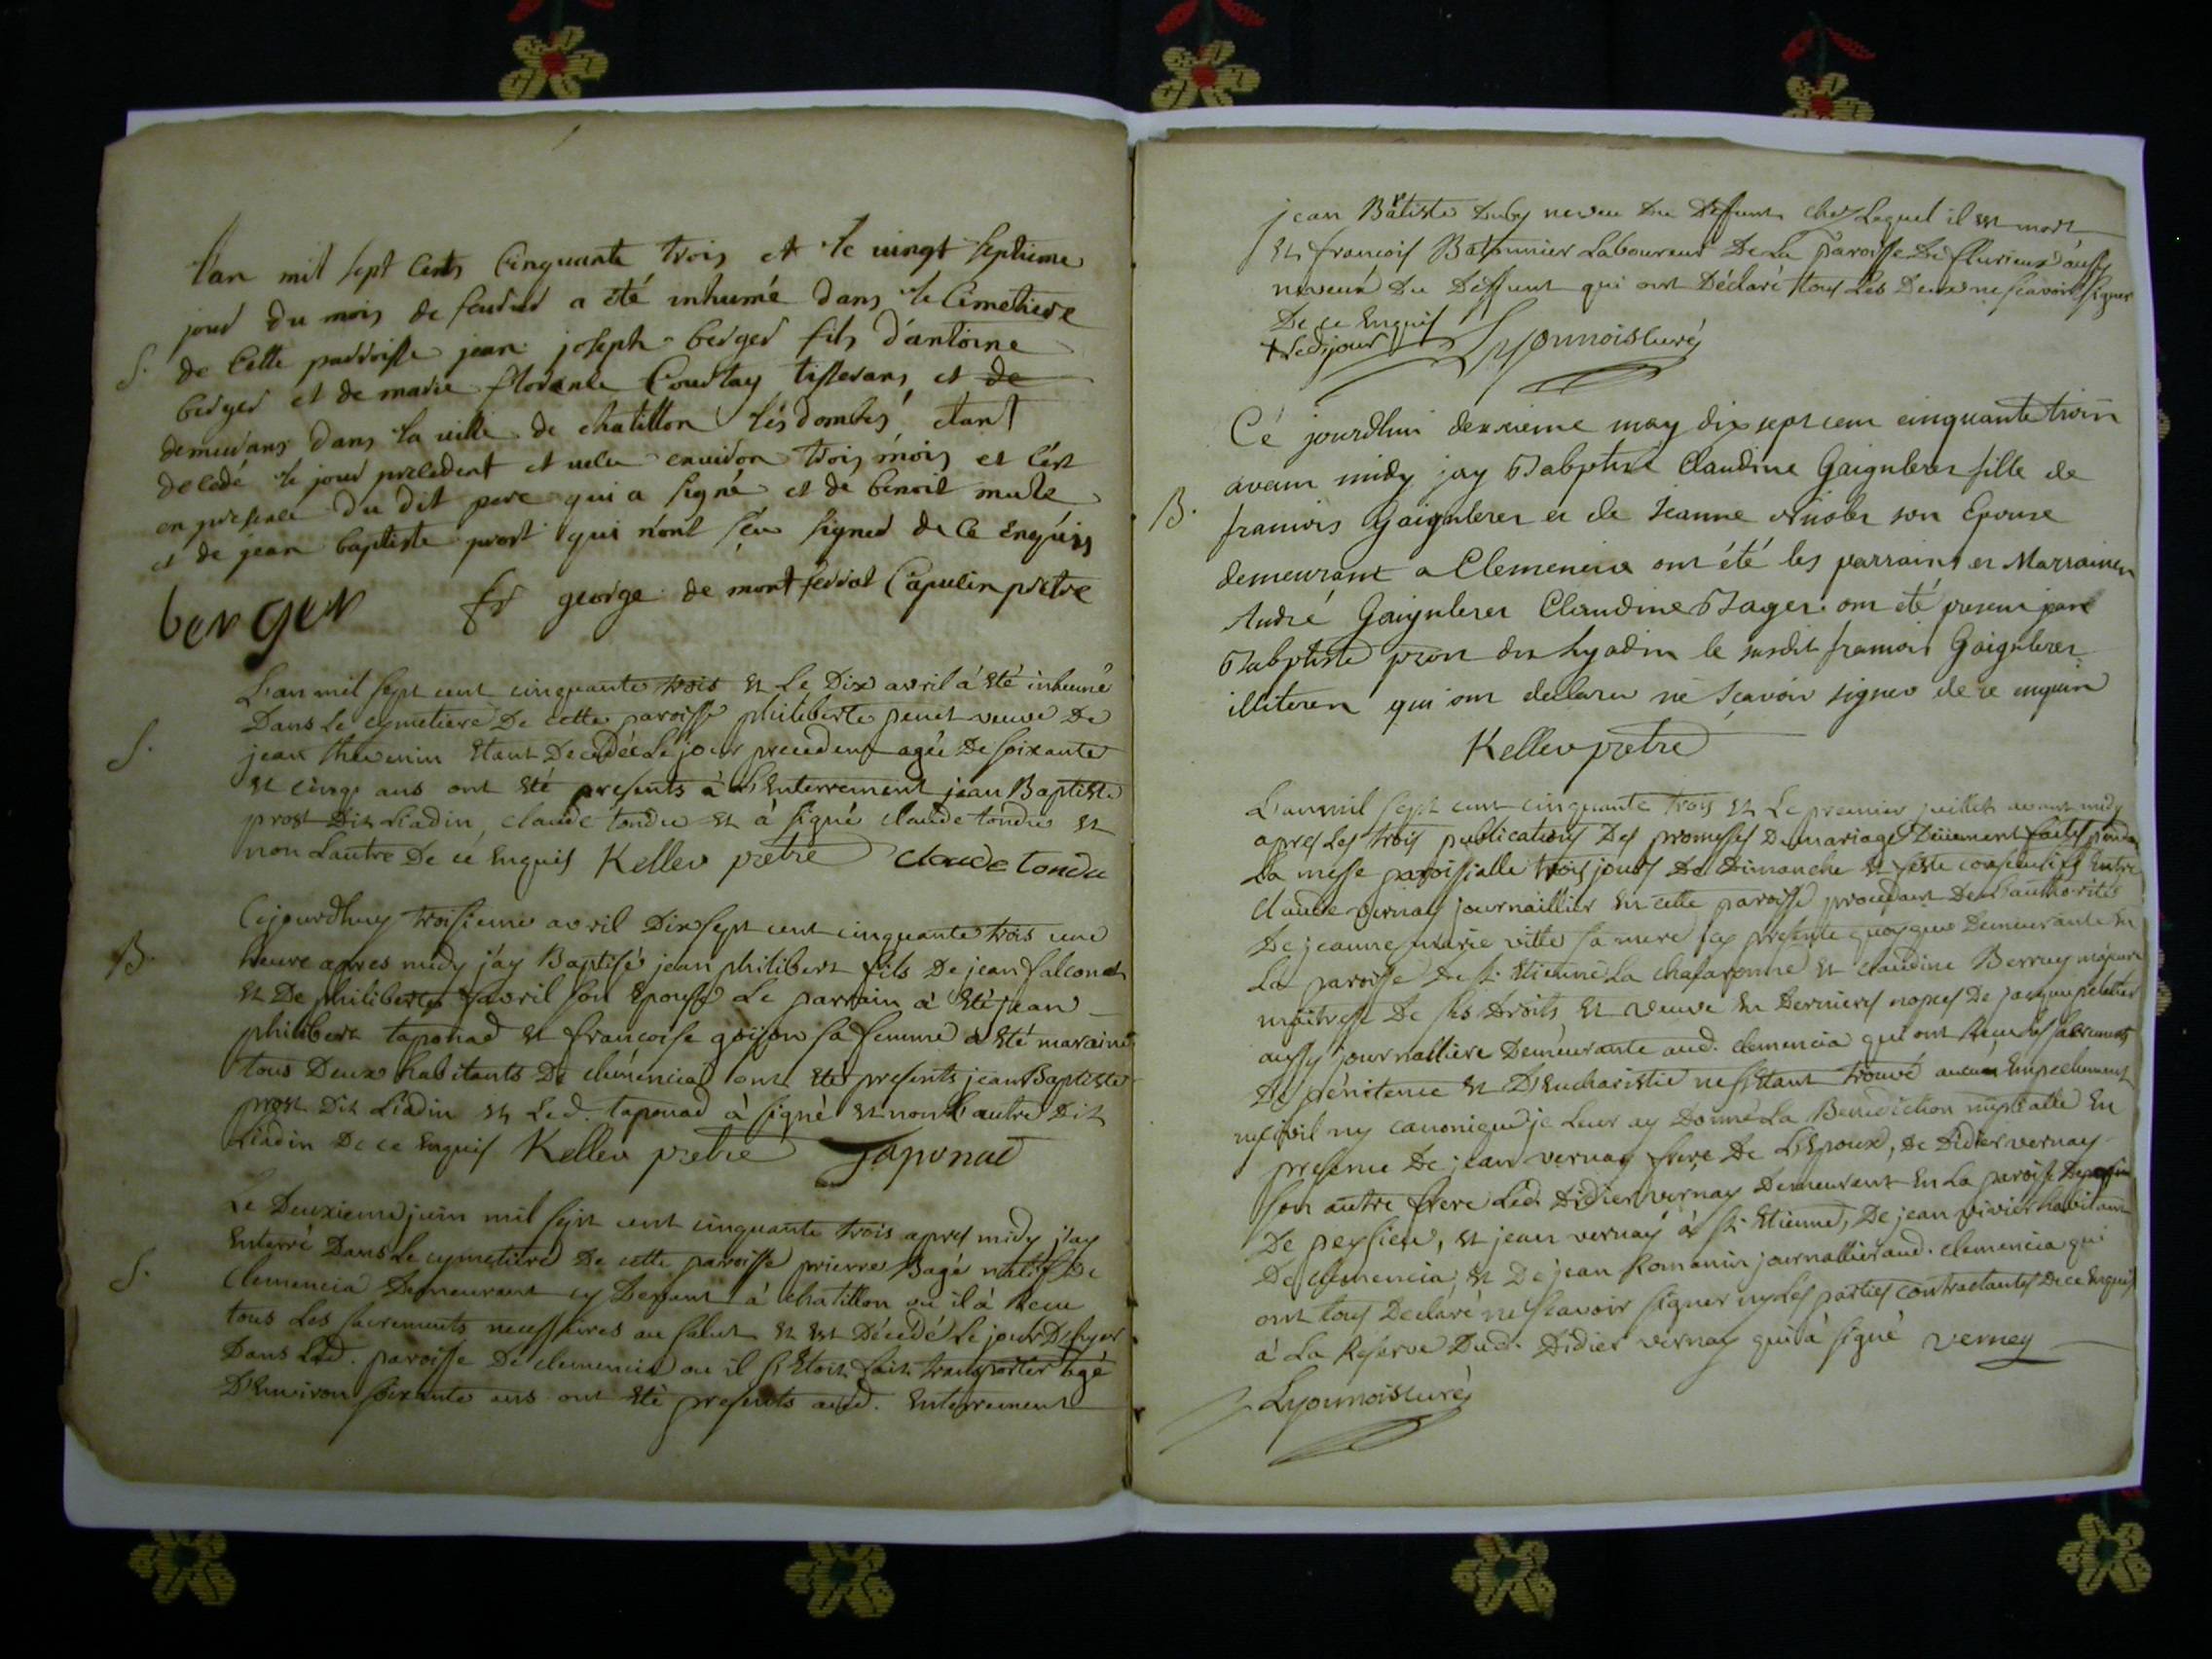 l'an mil sept cents cinquante trois et le vingt septieme
jour du mois de fevrier a été inhumé dans le Cimetiere
S. de cette parroisse jean joseph berger fils d'antoine
berger et de marie florence Courtay tisserans et de
demeurans dans la ville de chatillon lés dombes étant
decedé le jour precedent et vecu environ trois mois et c'est
en presence du dit pere qui a signé et de benoit
et de jean baptiste prost qui n'ont sçu signer de ce enquis
berger fr george de mont ferrat Capucin prêtre
L'an mil sept cent cinquante trois et Le Dix avril á été inhumé
Dans Le cymetiere De cette paroisse philiberte penet veuve De
S. jean thevenin étant Decedée Le jour precedent agée De soixante
et cinq ans ont été presents à L'Enterrement jean Baptiste
prost Dit Liadin, claude tondu et à signé claude tondu et
non Lautre De ce Enquis Keller prêtre claude tondu
Cejourdhuy troisieme avril Dix sept cent cinquante trois une
B. heure apres midy j'ay Baptisé jean philibert fils De jean falconet
et De philiberte savril son Epouse Le parrain à été jean
philibert taponad et francoise goison sa femme a été maraine
tous Deux habitants De clémencia ont été presents jean Baptiste
prost Dit Liadin et Led. taponad à signé et non L'autre Dit
Liadin De ce Enquis Keller prêtre Taponad
Le Deuxieme juin mil sept cent cinquante trois apres midy j'ay
Enterré Dans Le cymetiere De cette paroisse prierre Bagé natif De
S. Clemencia Demeurant cy Devant à chatillon ou il à Recu
tous Les sacrements necessaires au salut et est Décédé Le jour D'hyer
Dans Lad. paroisse De clemencia ou il s'Etoit fait transporter agé
D'Environ soixante ans ont été presents aud. Enterrement
jean Batiste Duby neveu Du Deffunt chez Lequel il est mort
Et francois Batonnier Laboureur De La Paroisse De flurieux aussy
neveux Du Deffunt qui ont Déclaré tous Les Deux ne scavoir signer
De ce Enquis
+ Led. jour Lyonnois curé
Cé jourdhui deuxieme may dix sept cem cinquante trois
avam midy jay Babptisé Claudine Gaigneleres fille de
B. framois Gaigneleres et de Jeanne son Epouse
demeurant a Clemencia ont été les parrains et Marraines
André Gaigneleres Claudine Bager om été presens jean
Babptiste prost du Lyadin le susdit framois Gaigneleres
illiteres qui om declares ne scavoir signer de ce enquis
Keller prêtre
L'an mil sept cent cinquante trois et Le premier juillet avant midy
apres Les trois publications Des promesses De mariage Düement faites pendant
La messe paroissialle trois jours De Dimanche et feste consecutifs Entre
claude vernay journaillier En cette paroisse procedant De L'authorité
De jeanne marie ville sa mere icy presente quoyque Demeurante En
La paroisse De St. Etienne La chafaronne et claudine Berruy majeure
maitresse De ses Droits et veuve En Dernieres nopces De jacque pelletier
aussy journalliere Demeurante aud. clemencia qui ont Recu Les sacrements
De pénitence et D'Eucharistie ne s'Etant trouvé aucun Empechement
ny civil ny canonique je Leur ay Donné La Benediction nuptialle En
presence De jean vernay frere De L'Epoux, De Didier vernay
son autre frere Led. Didier vernay Demeurant En La paroisse
De peysieu, et jean vernay à St. Etienne, De jean vivier habitant
De clemencia, et De jean Romanin journallier aud. clemencia qui
ont tous Declaré ne scavoir signer ny Les parties contractantes De ce Enquis
à La Reserve Dud. Didier vernay qui à signé verney
Lyonnois curé